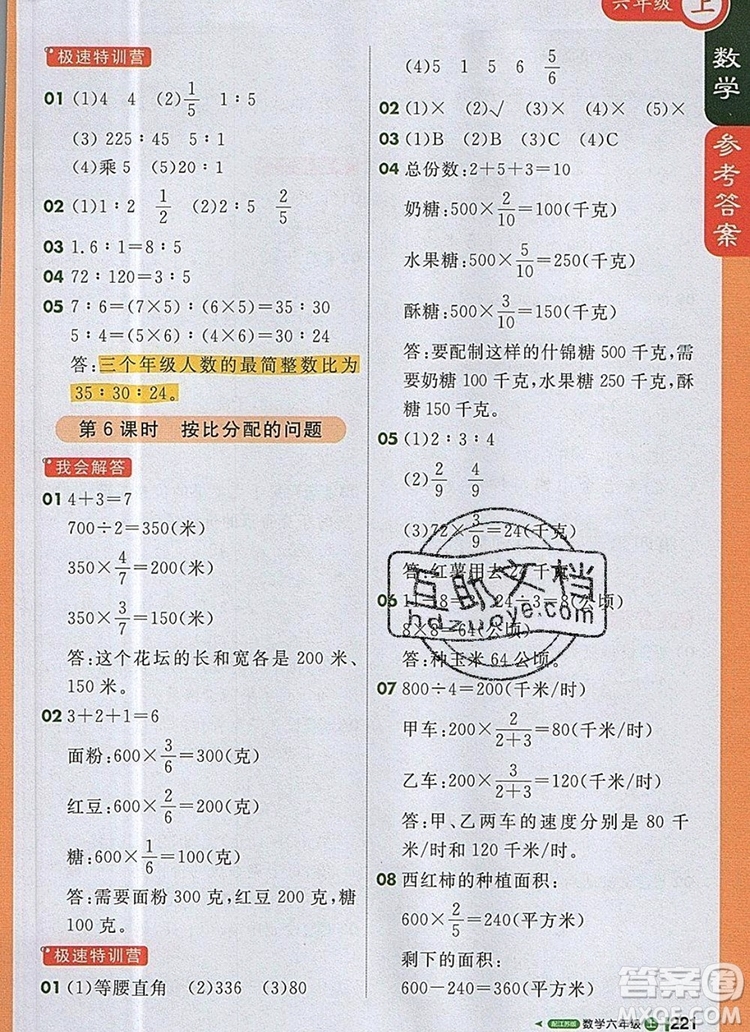 六年级 上
数学
参考答案
极速特训营
01 (1)4 4 (2)1/5 1∶5
(3)225∶45 5∶1
(4)乘5 (5)20∶1
02 (1)1∶2 1/2 (2)1∶5 1/5
03 1.6∶1=8∶5
04 72∶120=3∶5
05 7∶6=(7×5)∶(6×5)=35∶30
5∶4=(5×6)∶(4×6)=30∶24
答:三个年级人数的最简整数比为
35∶30∶24。
第6课时 按比分配的问题
我会解答
01 4+3=7
700÷2=350(米)
350×4/7=200(米)
350×3/7=150(米)
答:这个花坛的长和宽各是 200 米、
150 米。
02 3+2+1=6
面粉:600×3/6=300(克)
红豆:600×2/6=200(克)
糖:600×1/6=100(克)
答:需要面粉 300 克,红豆 200 克,糖
100 克。
极速特训营
01 (1)等腰直角 (2)336 (3)80
(4)5 1 5 6 5/6
02 (1)× (2)√ (3)× (4)× (5)×
03 (1)B (2)B (3)B
04 总份数:2+5+3=10
奶糖:500×2/10=100(千克)
水果糖:500×5/10=250(千克)
酥糖:500×3/10=150(千克)
答:要配制这样的什锦糖 500 千克,需
要奶糖 100 千克,水果糖 250 千克,酥
糖 150 千克。
05 (1)2∶3∶4
(2)2/9 4/9
(3)72×3/9=24(千克)
答:红薯用去 24 千克。
06 11-8=3 24÷3=8(公顷)
8×8=64(公顷)
答:种玉米 64 公顷。
07 800÷4=200(千米/时)
甲车:200×2/(2+3)=80(千米/时)
乙车:200×3/(2+3)=120(千米/时)
答:甲、乙两车的速度分别是 80 千
米/时和 120 千米/时。
08 西红柿的种植面积:
600×2/5=240(平方米)
剩下的面积:
互助文档
hdzuoye.com
答案圈
MXQE.COM
配江苏版 数学六年级 上 221